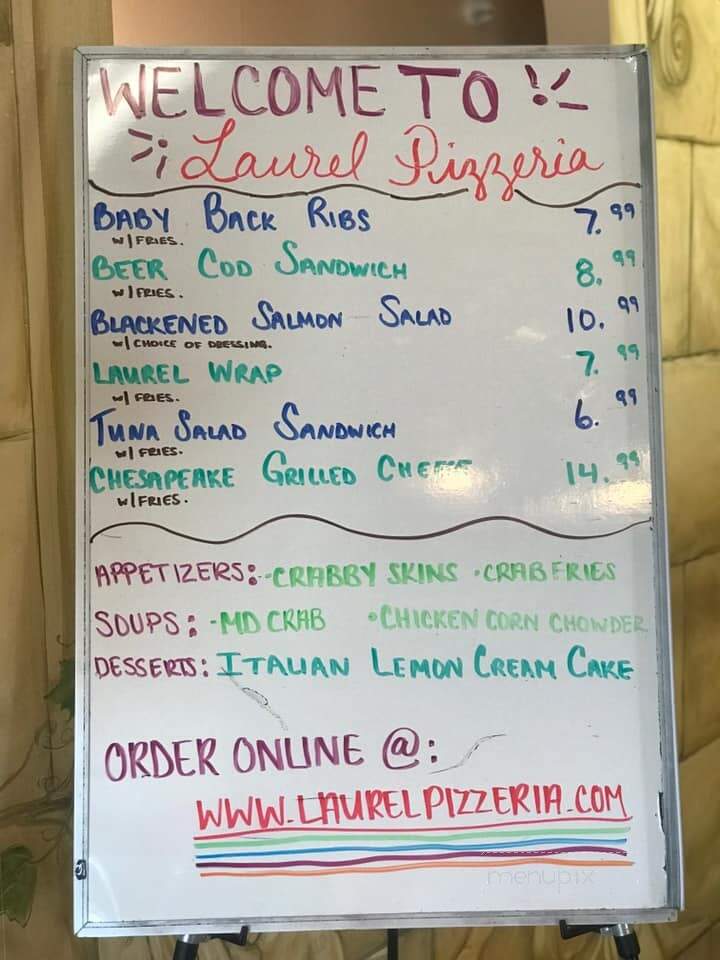 WELCOME TO
Laurel Pizzeria
BABY BACK RIBS 7.99
W/ FRIES.
BEER COD SANDWICH 8.99
W/ FRIES.
BLACKENED SALMON SALAD 10.99
W/ CHOICE OF DRESSING.
LAUREL WRAP 7.99
W/ FRIES.
TUNA SALAD SANDWICH 6.99
W/ FRIES.
CHESAPEAKE GRILLED CHEESE 14.99
W/FRIES.
APPETIZERS: ·CRABBY SKINS ·CRAB FRIES
SOUPS: ·MD CRAB ·CHICKEN CORN CHOWDER
DESSERTS: ITALIAN LEMON CREAM CAKE
ORDER ONLINE @:
WWW.LAURELPIZZERIA.COM
menupix